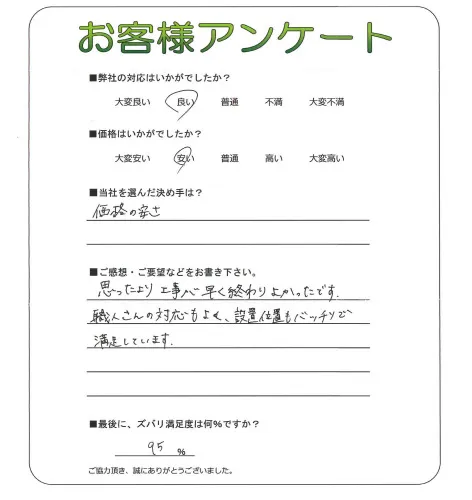 お客様アンケート
■弊社の対応はいかがでしたか？
大変良い 良い 普通 不満 大変不満
■価格はいかがでしたか？
大変安い 安い 普通 高い 大変高い
■当社を選んだ決め手は？
価格の安さ
■ご感想・ご要望などをお書き下さい。
思ったより工事が早く終わりよかったです.
職人さんの対応もよく、設置位置もバッチリで
満足しています.
■最後に、ズバリ満足度は何％ですか？
95 ％
ご協力頂き、誠にありがとうございました。